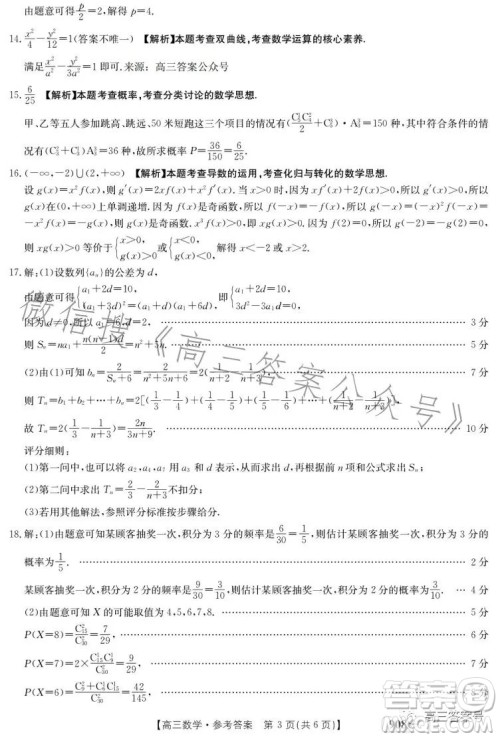 由题意可得p/2=2,解得p=4.
14. x²/4-y²/12=1(答案不唯一) 【解析】本题考查双曲线,考查数学运算的核心素养.
满足x²/a²-y²/3a²=1即可.来源:高三答案公众号
15. 6/25 【解析】本题考查概率,考查分类讨论的数学思想.
甲、乙等五人参加跳高、跳远、50米短跑这三个项目的情况有
·A₃³=150种,其中符合条件的情
36种,故所求概率P=36/150=6/25.
16.(-∞,-2)∪(2,+∞) 【解析】本题考查导数的运用,考查化归与转化的数学思想.
设g(x)=x²f(x),则g′(x)=2xf(x)+x²f′(x).当x>0时,因为xf′(x)+2f(x)>0,所以g′(x)>0,所以
g(x)在(0,+∞)上单调递增.因为f(x)是奇函数,所以f(-x)=-f(x),所以g(-x)=(-x)²f(-x)=
-x²f(x)=-g(x),则g(x)是奇函数.x³f(x)>0,即xg(x)>0.因为f(2)=0,所以g(-2)=-g(2)=0,
则xg(x)>0等价于{x>0, g(x)>0或{x<0, g(x)<0,解得x<-2或x>2.
17.解:(1)设数列{aₙ}的公差为d,
由题意可得{a₁+2d=10, (a₁+3d)²=(a₁+d)(a₁+6d), 即{a₁+2d=10, 3d²-a₁d=0,
因为d≠0,所以a₁=6,d=2, 3分
则Sₙ=na₁+n(n-1)d/2=n²+5n. 5分
(2)由(1)可知bₙ=2/(Sₙ+6)=2/(n²+5n+6)=2(1/(n+2)-1/(n+3)), 7分
则Tₙ=b₁+b₂+…+bₙ=2[(1/3-1/4)+(1/4-1/5)+…+(1/(n+2)-1/(n+3))]
=2(1/3-1/(n+3)).
故Tₙ=2n/(3n+9). 10分
评分细则:
(1)第一问中,也可以将a₂,a₄,a₇用a₃和d表示,从而求出d,再求出Sₙ;
(2)第二问中求出Tₙ=2/3-2/(n+3)不予扣分.
18.解:(1)由题意可知某顾客抽奖一次,积分为3分的频率是6/30=1/5,则估计某顾客抽奖一次,积分为3分的
概率为1/5. 2分
某顾客抽奖一次,积分为2分的频率是9/30=3/10,则估计某顾客抽奖一次,积分为2分的概率为3/10. 4分
(2)由题意可知X的可能取值为4,5,6,7,8. 5分
P(X=8)= =7/29, 6分
P(X=7)=2× =7/29,
P(X=6)= =42/145,
【高三数学·参考答案 第3页(共6页)】
微信搜《高三答案公众号》
高三答案号
答案圈